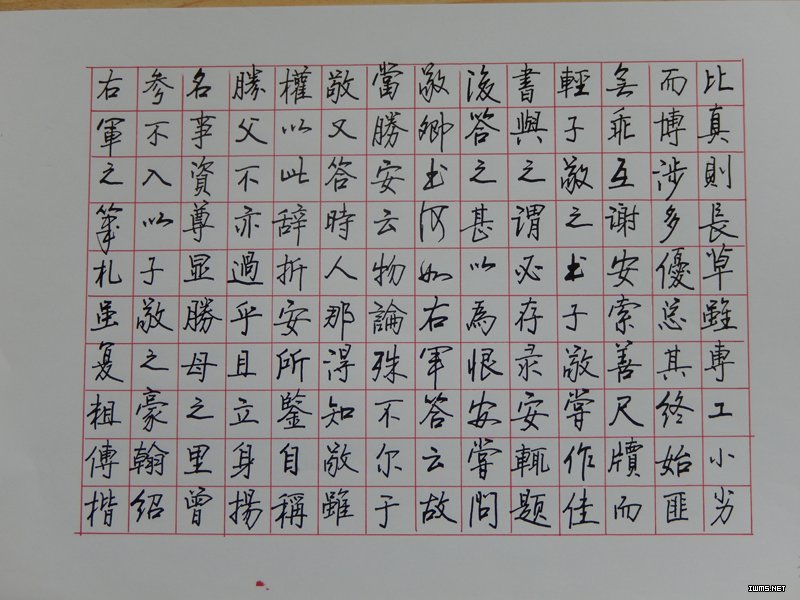 比真則長草雖專工小劣
而博涉多優总其終始匪
无乖互谢安索善尺牘而
輕子敬之书子敬嘗作佳
書與之謂必存录安輒題
後答之甚以為恨安嘗問
敬卿书何如右軍答云故
當勝安云物論殊不尔于
敬又答時人那得知敬雖
權以此辞折安所鑒自稱
勝父不亦過乎且立身揚
名事資尊显勝母之里曾
参不入以子敬之豪翰紹
右軍之筆札虽复粗傳楷
IWMS.NET